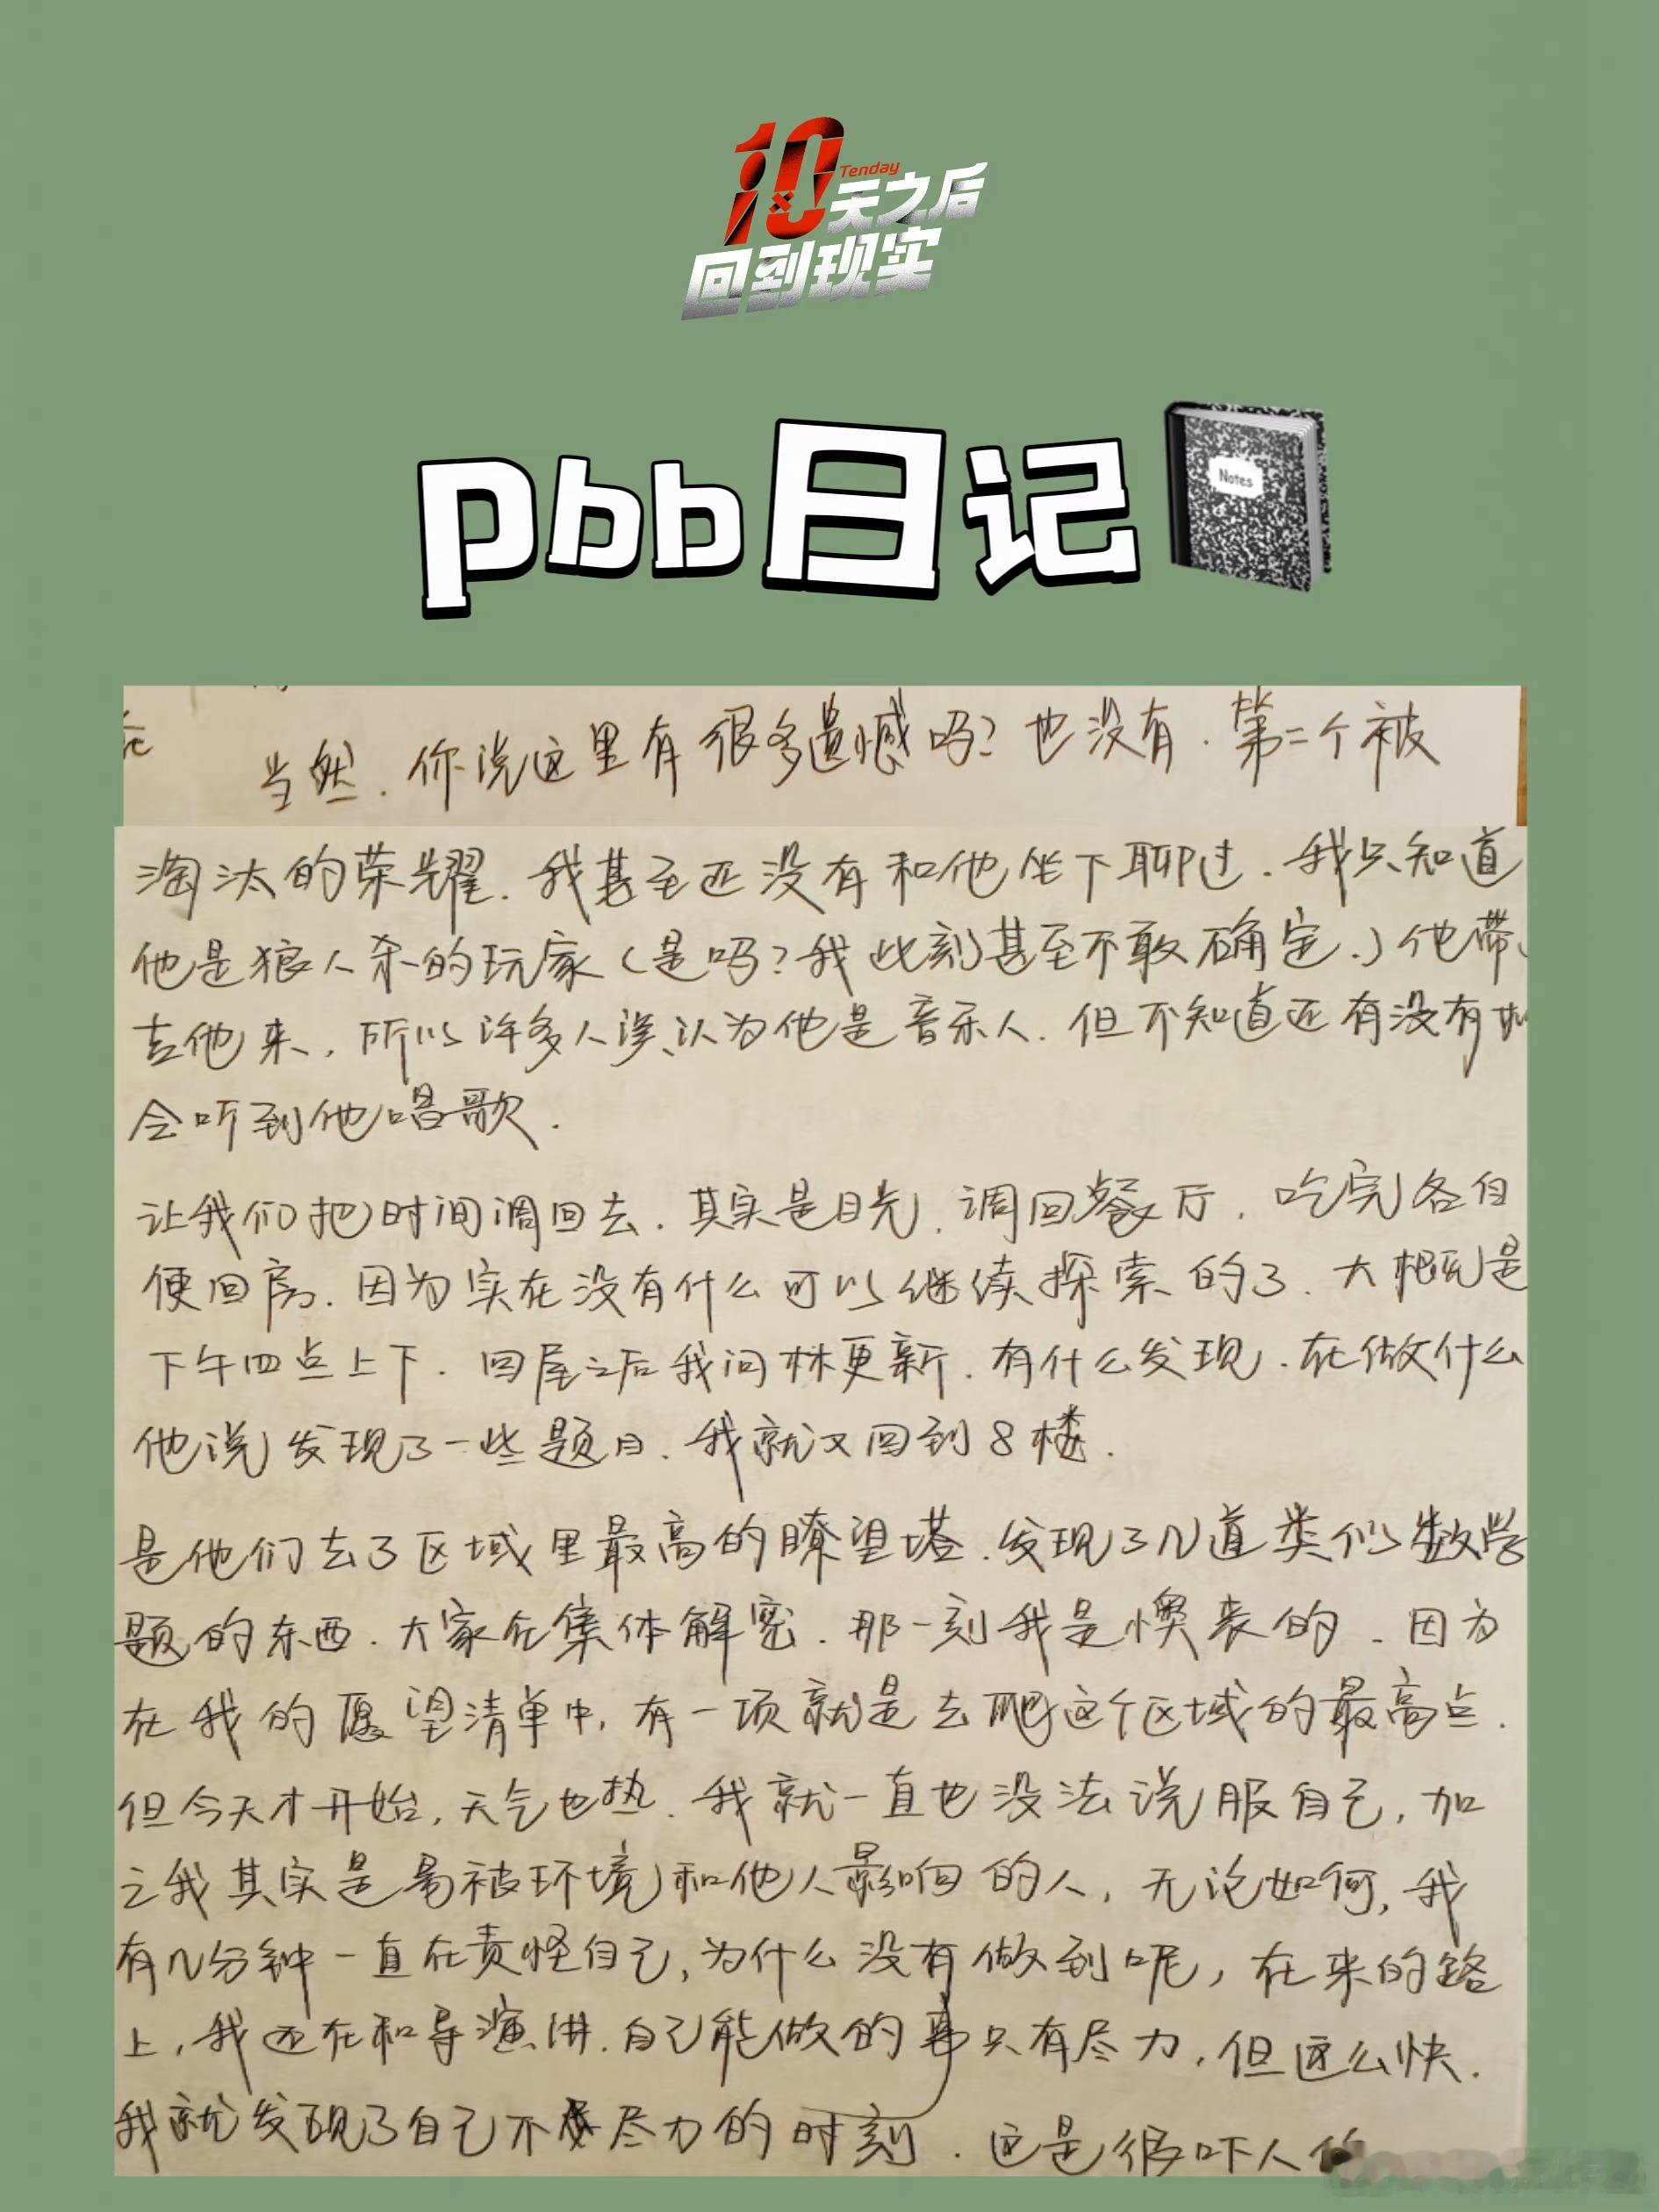 10
Tenday
天之后
回到现实
pbb日记
Notes
当然.你说这里有很多遗憾吗?也没有.第二个被
淘汰的荣耀.我甚至还没有和他坐下聊过.我只知道
他是狼人杀的玩家(是吗?我此刻甚至不敢确定.)他带
吉他来,所以许多人误认为他是音乐人.但不知道还有没有机
会听到他唱歌.
让我们把时间调回去.其实是目先.调回餐厅.吃完各自
便回房.因为实在没有什么可以继续探索的了.大概是
下午四点上下.回屋之后我问林更新.有什么发现.在做什么
他说发现了一些题目.我就又回到8楼.
是他们去了区域里最高的瞭望塔.发现了几道类似数学
题的东西.大家在集体解密.那一刻我是懊丧的.因为
在我的愿望清单中,有一项就是去爬这个区域的最高点.
但今天才开始,天气也热.我就一直也没法说服自己,加
之我其实是易被环境和他人影响的人,无论如何,我
有几分钟一直在责怪自己,为什么没有做到呢,在来的路
上,我还在和导演讲.自己能做的事只有尽力,但这么快.
我就发现了自己不尽力的时刻.这是很吓人的